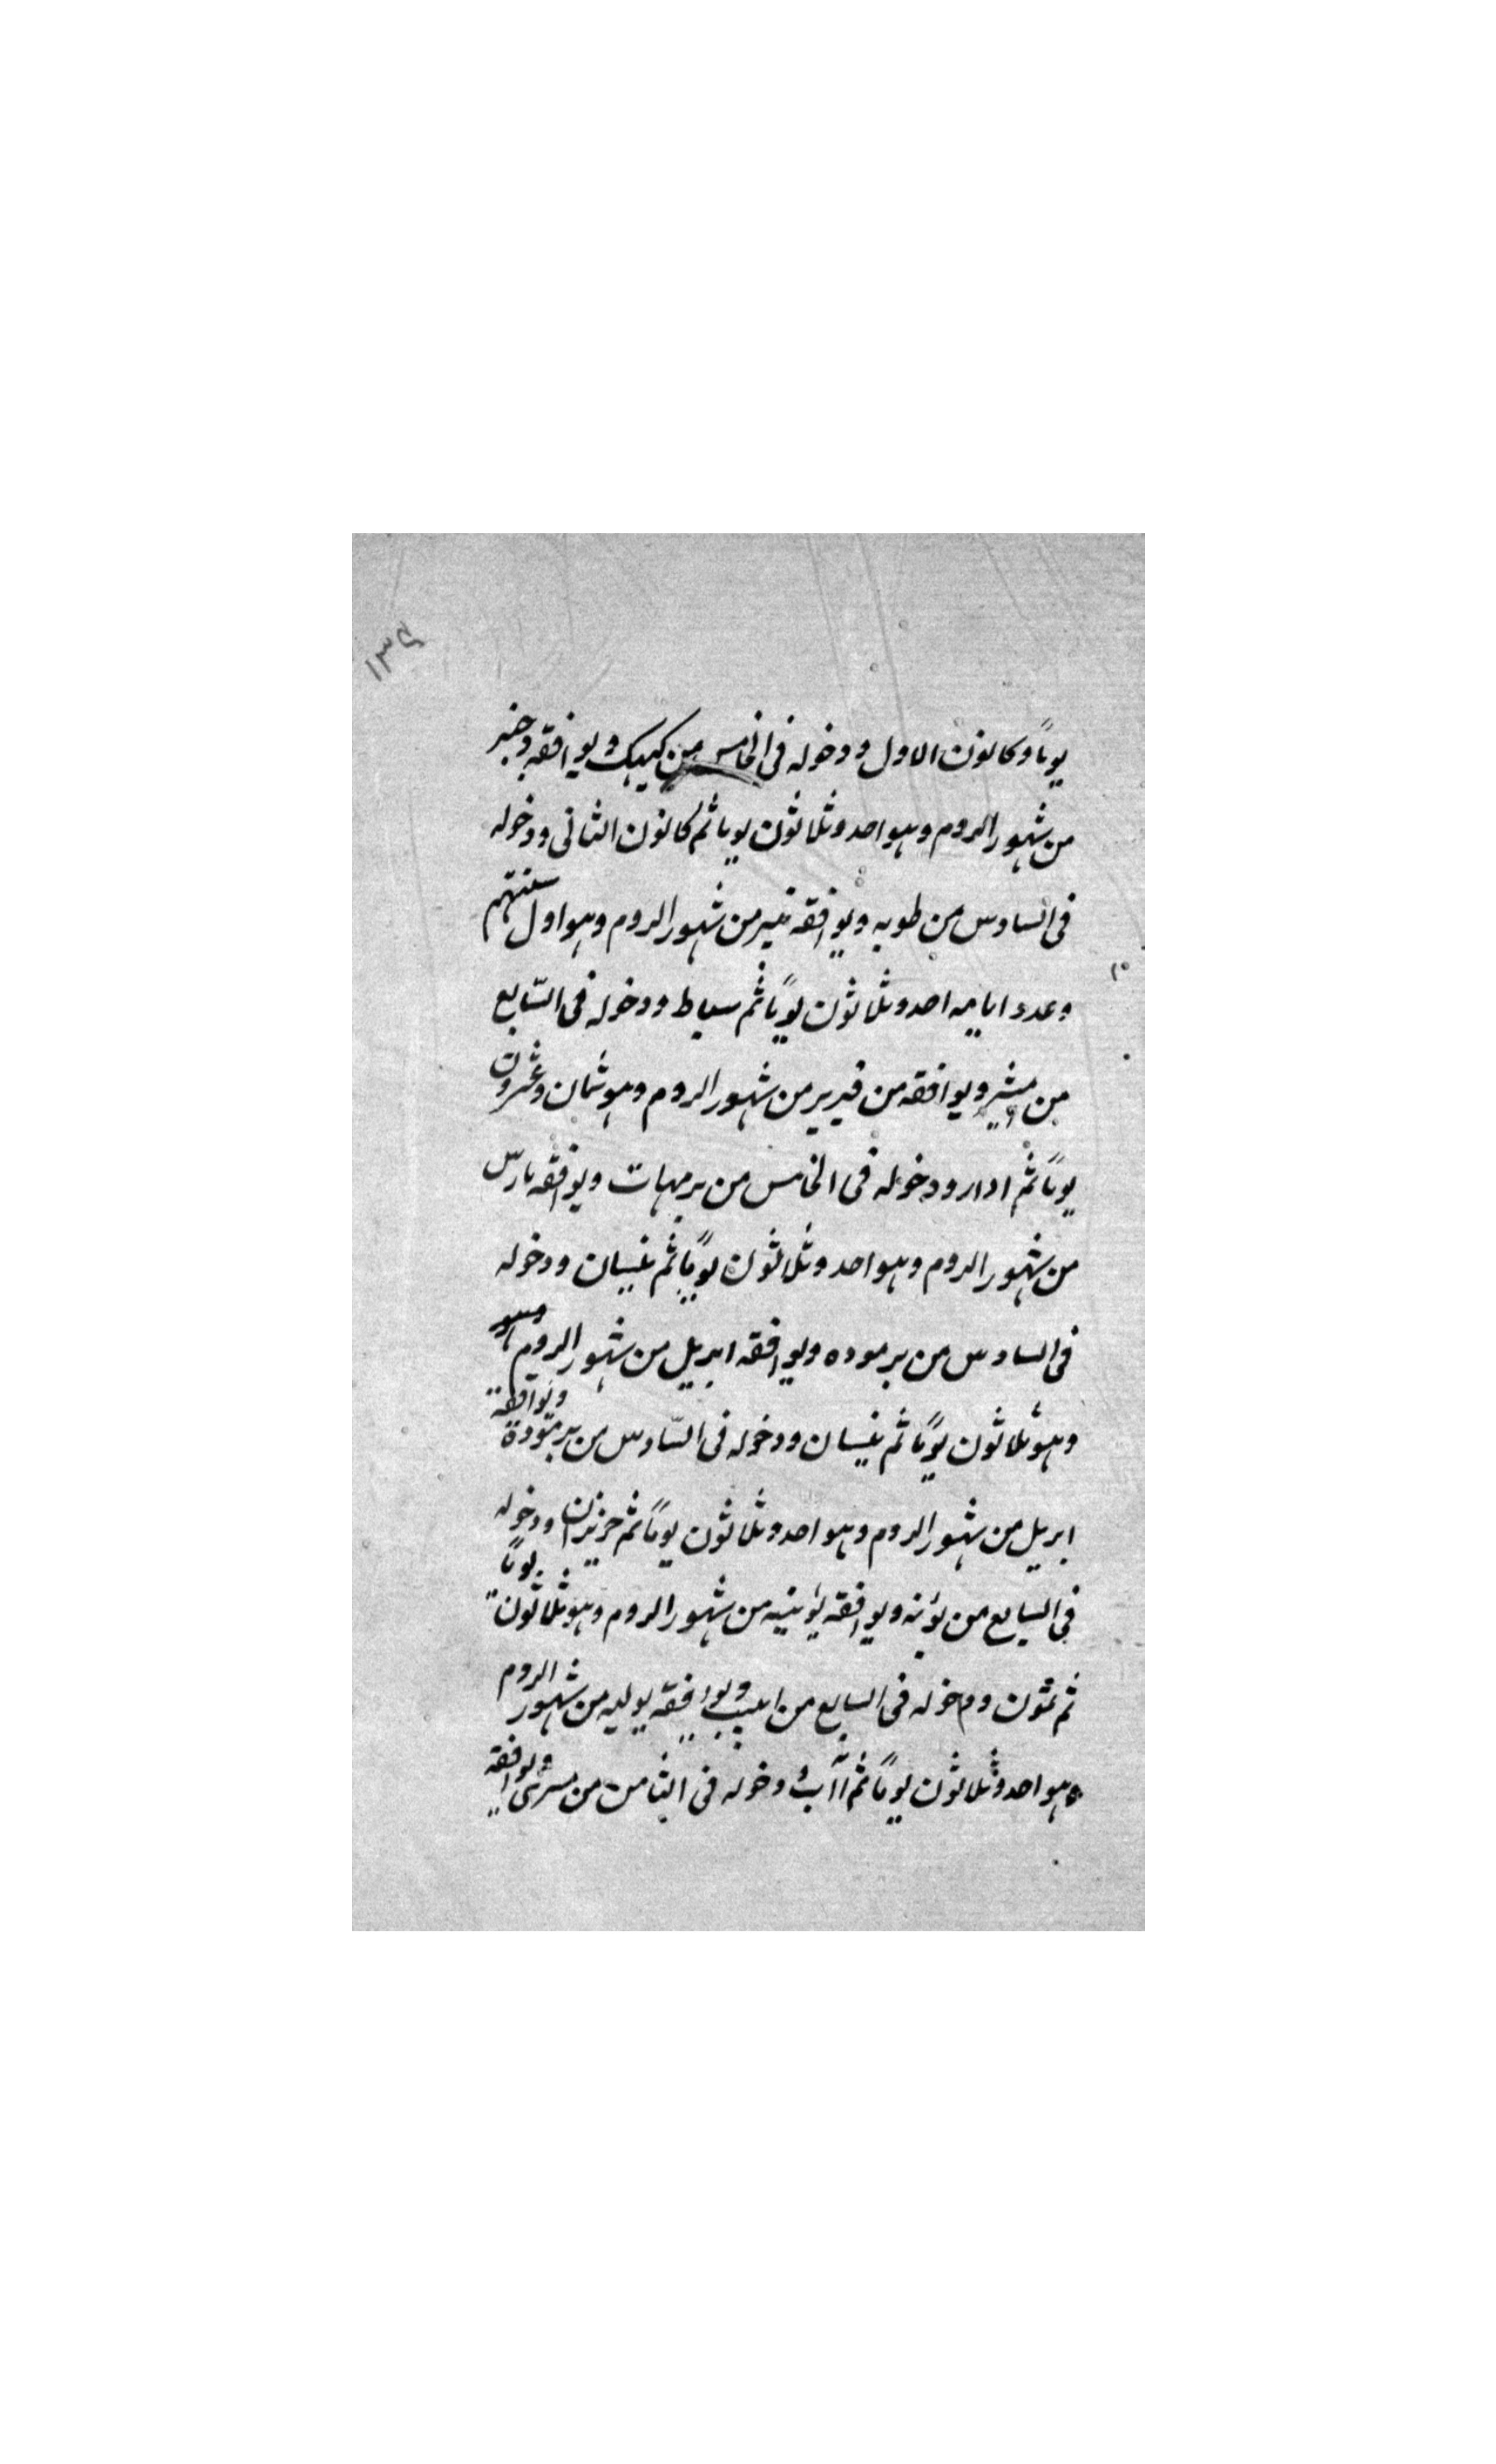 ١٣٤
يوماً وكانون الاول ودخوله فى الخامس من كيهك ويوافقه دخنبر
من شهور الروم وهو احد وثلاثون يوما ثم كانون الثانى ودخوله
فى السادس من طوبه ويوافقه ينير من شهور الروم وهو اول سنتهم
وعدد ايامه احد وثلاثون يوماً ثم سباط ودخوله فى السّابع
من مشير ويوافقه من فبرير من شهور الروم وهو ثمان وعشرون
يوماً ثم ادار ودخوله فى الخامس من برمهات ويوافقه مارس
من شهور الروم وهو احد وثلاثون يوماً ثم نيسان ودخوله
فى السادس من برموده ويوافقه ابريل من شهور الروم
وهو ثلاثون يوماً ثم نيسان ودخوله فى السّادس من برمودة ويوافقه
ابريل من شهور الروم وهو احد وثلاثون يوماً ثم حزيران ودخوله
فى السابع من بؤنه ويوافقه يؤنيه من شهور الروم وهو ثلاثون يوماً
ثم تموز ودخوله فى السابع من ابيب ويوافقه يوليه من شهور الروم
وهو احد وثلاثون يوماً ثم اآب ودخوله فى الثامن من مسرى ويوافقه